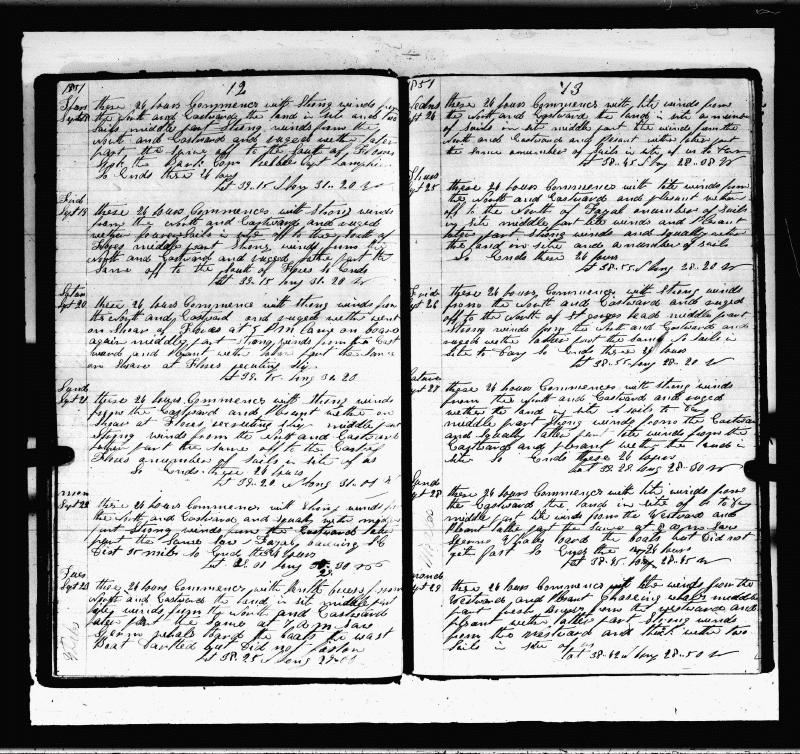 1851 12
Thurs these 24 hours Commences with Strong winds from
Sept 18 the North and Eastward the land in site and two
Sails middle part Strong winds from the
North and Eastward and ruged wether later
part the same off to the South of Flores
Spok the Bark Capt
So Ends these 24 hours
Lat 39.15 N long 31.20 W
Frid these 24 hours Commences with Strong winds
Sept 19 from the North and Eastward and ruged
wether Sails in site off to the South of
Flores middle part Strong winds from the
North and Eastward and ruged later part the
Same off to the South of Flores So Ends
Lat 39.15 long 31.20 W
Satur
Sept 20 these 24 hours Commence with Strong winds from
the North and Eastward and ruged wether went
on Shoar at Flores at 5 PM Came on board
again middle part Strong winds from the East
ward and Plesant wether later part the Same
on Shoar at Flores recruting Ship
Lat 39.15 long 31.20
Sund
Sept 21 these 24 hours Commences with Strong winds
from the Eastward and Plesant wether on
Shoar at Flores recruting Ship middle part
Strong winds from the North and Eastward
later part the Same off to the East of
Flores a number of Sails in site of us
So Ends these 24 hours
Lat 39.20 N long 31.01 W
mon
Sept 22 these 24 hours Commences with Strong winds
the North and Eastward and Squaly wether middle
part Strong winds from the Eastward later
part the Same saw Fayal bearing SE
Dist 35 miles So Ends these 24 hours
long 30
Tues
Sept 23 these 24 hours Commences with fresh breses from
North and Eastward the land in site middle part
lite winds from the North and Eastward
later part the Same at 7 AM Saw
Sperm whales loard the boats the wast
Boat but Did not fasten
Lat 38.25 N long 29.01
1851 13
Wedns these 24 hours Commences with lite winds from
Sept 24 the North and Eastward the land in site a number
of Sails in site middle part lite winds from the
North and Eastward and Plesant wether later part
the same a number of Sails in site of us
Lat 38.45 N long 28.08 W
Thurs
Sept 25 these 24 hours Commences with lite winds from
the North and Eastward and plesant wether
off to the North of Fayal a number of Sails
in site middle part lite winds and Plesant
later part Strong winds and Squaly wether
the land in site and a number of sails
So Ends these 24 hours
Lat 38.55 N long 28.20 W
Frid these 24 hours Commences with Strong winds
Sept 26 from the North and Eastward and ruged
off to the North of St Gorges head middle part
Strong winds from the North and Eastward and
ruged wether later part the Same sails in
Site to Day So Ends these 24 hours
Lat 38.55 long 28.20 W
Satur
Sept 27 these 24 hours Commences with Strong winds
from the North and Eastward and ruged
wether the land in site sails to Day
middle part Strong winds from the Eastward
and Squaly later part lite winds from the
Eastward and Plesant wether the land in
site So Ends these 24 hours
Lat 39.28 long 28.30 W
Sund
Sept 28 these 24 hours Commences with lite winds from
the Eastward the land in site of us to Day
middle part lite winds from the Westward and
Plesant later part the Same at 8 AM Saw
Sperm Whales loard the boats but Did not
get fast So Ends these 24 hours
Lat 38.45 long 28.45 W
mond
Sept 29 these 24 hours Commences with lite winds from the
Westward and Plesant Chaseing whales middle
part fresh breses from the Westward and
plesant wether later part Strong winds
from the Westward and thick wether two
Sails in site of us
Lat 38.42 N long 28.50 W